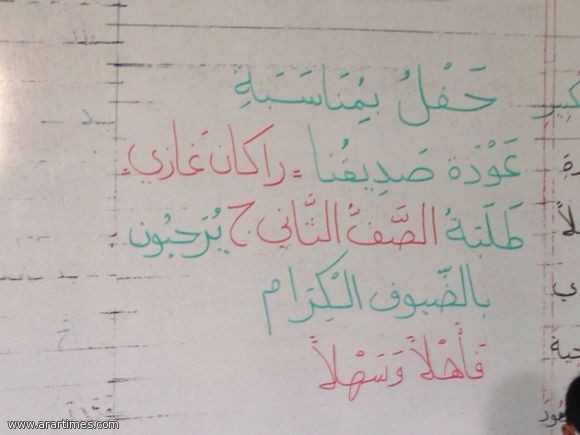 حَفْلُ بِمُنَاسَبَةِ
عَوْدَة صَدِيقُنا = راكان غَازي =
طَلَبَةُ الصَّفُّ الثَّاني ج يُرَحِبُون
بالضّيوف الْكِرَام
فَأَهْلاً وَسَهْلاً
www.arartimes.com